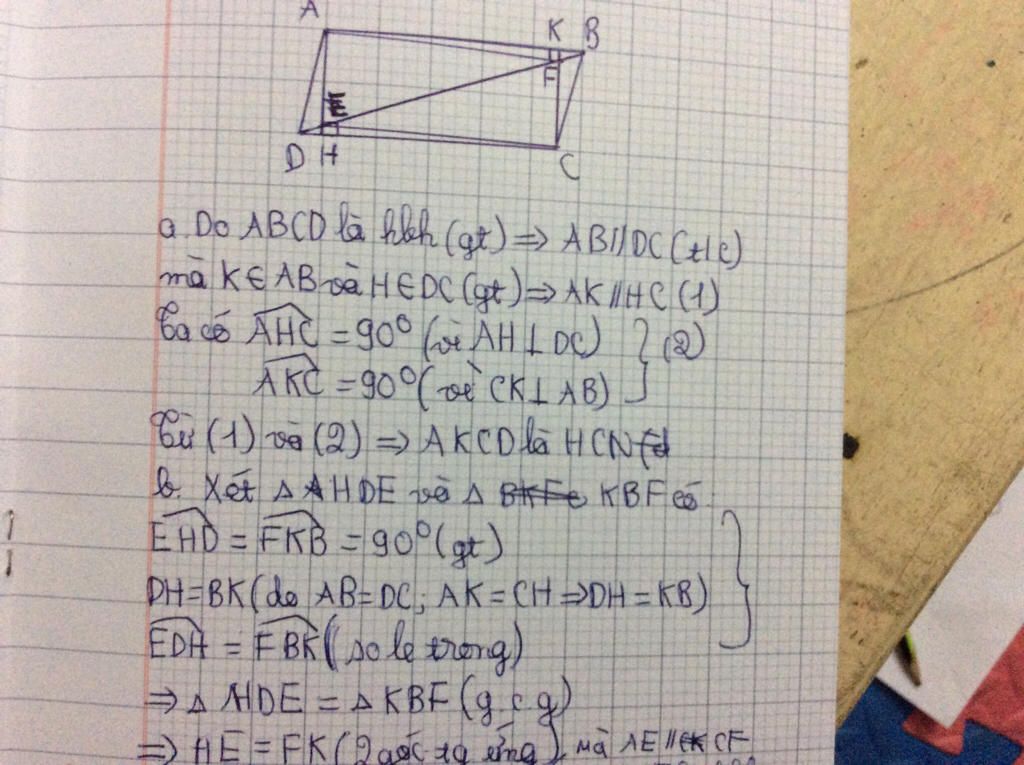 A
K B
E
F
D H
C
a. Do ABCD là hbh (gt) ⇒ AB // DC (t/c)
mà K ∈ AB và H ∈ DC (gt) ⇒ AK // HC (1)
Ta có AHC = 90° (vì AH ⊥ DC) } (2)
AKC = 90° (vì CK ⊥ AB)
Từ (1) và (2) ⇒ AKCD là HCN
b. Xét Δ HDE và Δ KBF có
EHD = FKB = 90° (gt)
DH = BK (do AB = DC; AK = CH ⇒ DH = KB)
EDH = FBK (so le trong)
⇒ Δ HDE = Δ KBF (g.c.g)
⇒ HE = FK (2 góc tg ứng) mà AE // CF